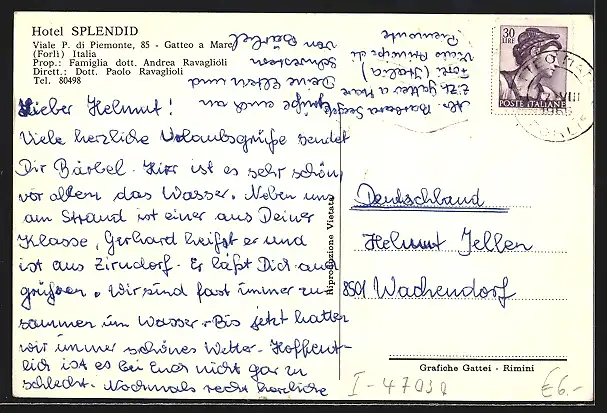 Hotel SPLENDID
Viale P. di Piemonte, 85 - Gatteo a Mare
(Forlì) Italia
Prop.: Famiglia dott. Andrea Ravaglioli
Dirett.: Dott. Paolo Ravaglioli
Tel. 80498
Lieber Helmut!
Viele herzliche Urlaubsgrüße sendet
Dir Bärbel. Hier ist es sehr schön,
vor allem das Wasser. Neben uns
am Strand ist einer aus Deiner
Klasse, Gerhard heißt er und
ist aus Zirndorf. Er läßt Dich auch
grüßen. Wir sind fast immer zu-
sammen im Wasser. Bis jetzt hatten
wir immer schönes Wetter. Hoffent-
lich ist es bei Euch nicht gar zu
schlecht. Nochmals recht herzliche
Grüße auch an
Deine Eltern und
Schwestern
von Bärbel
Barbara
Z.Zt. Gatteo a Mare
Forli (Italia)
Viale Principe di
Piemonte
30
LIRE
POSTE ITALIANE
VIII
Riproduzione Vietata
Deutschland
Helmut Jellen
8501 Wachendorf
Grafiche Gattei - Rimini
I-47030
€6.-